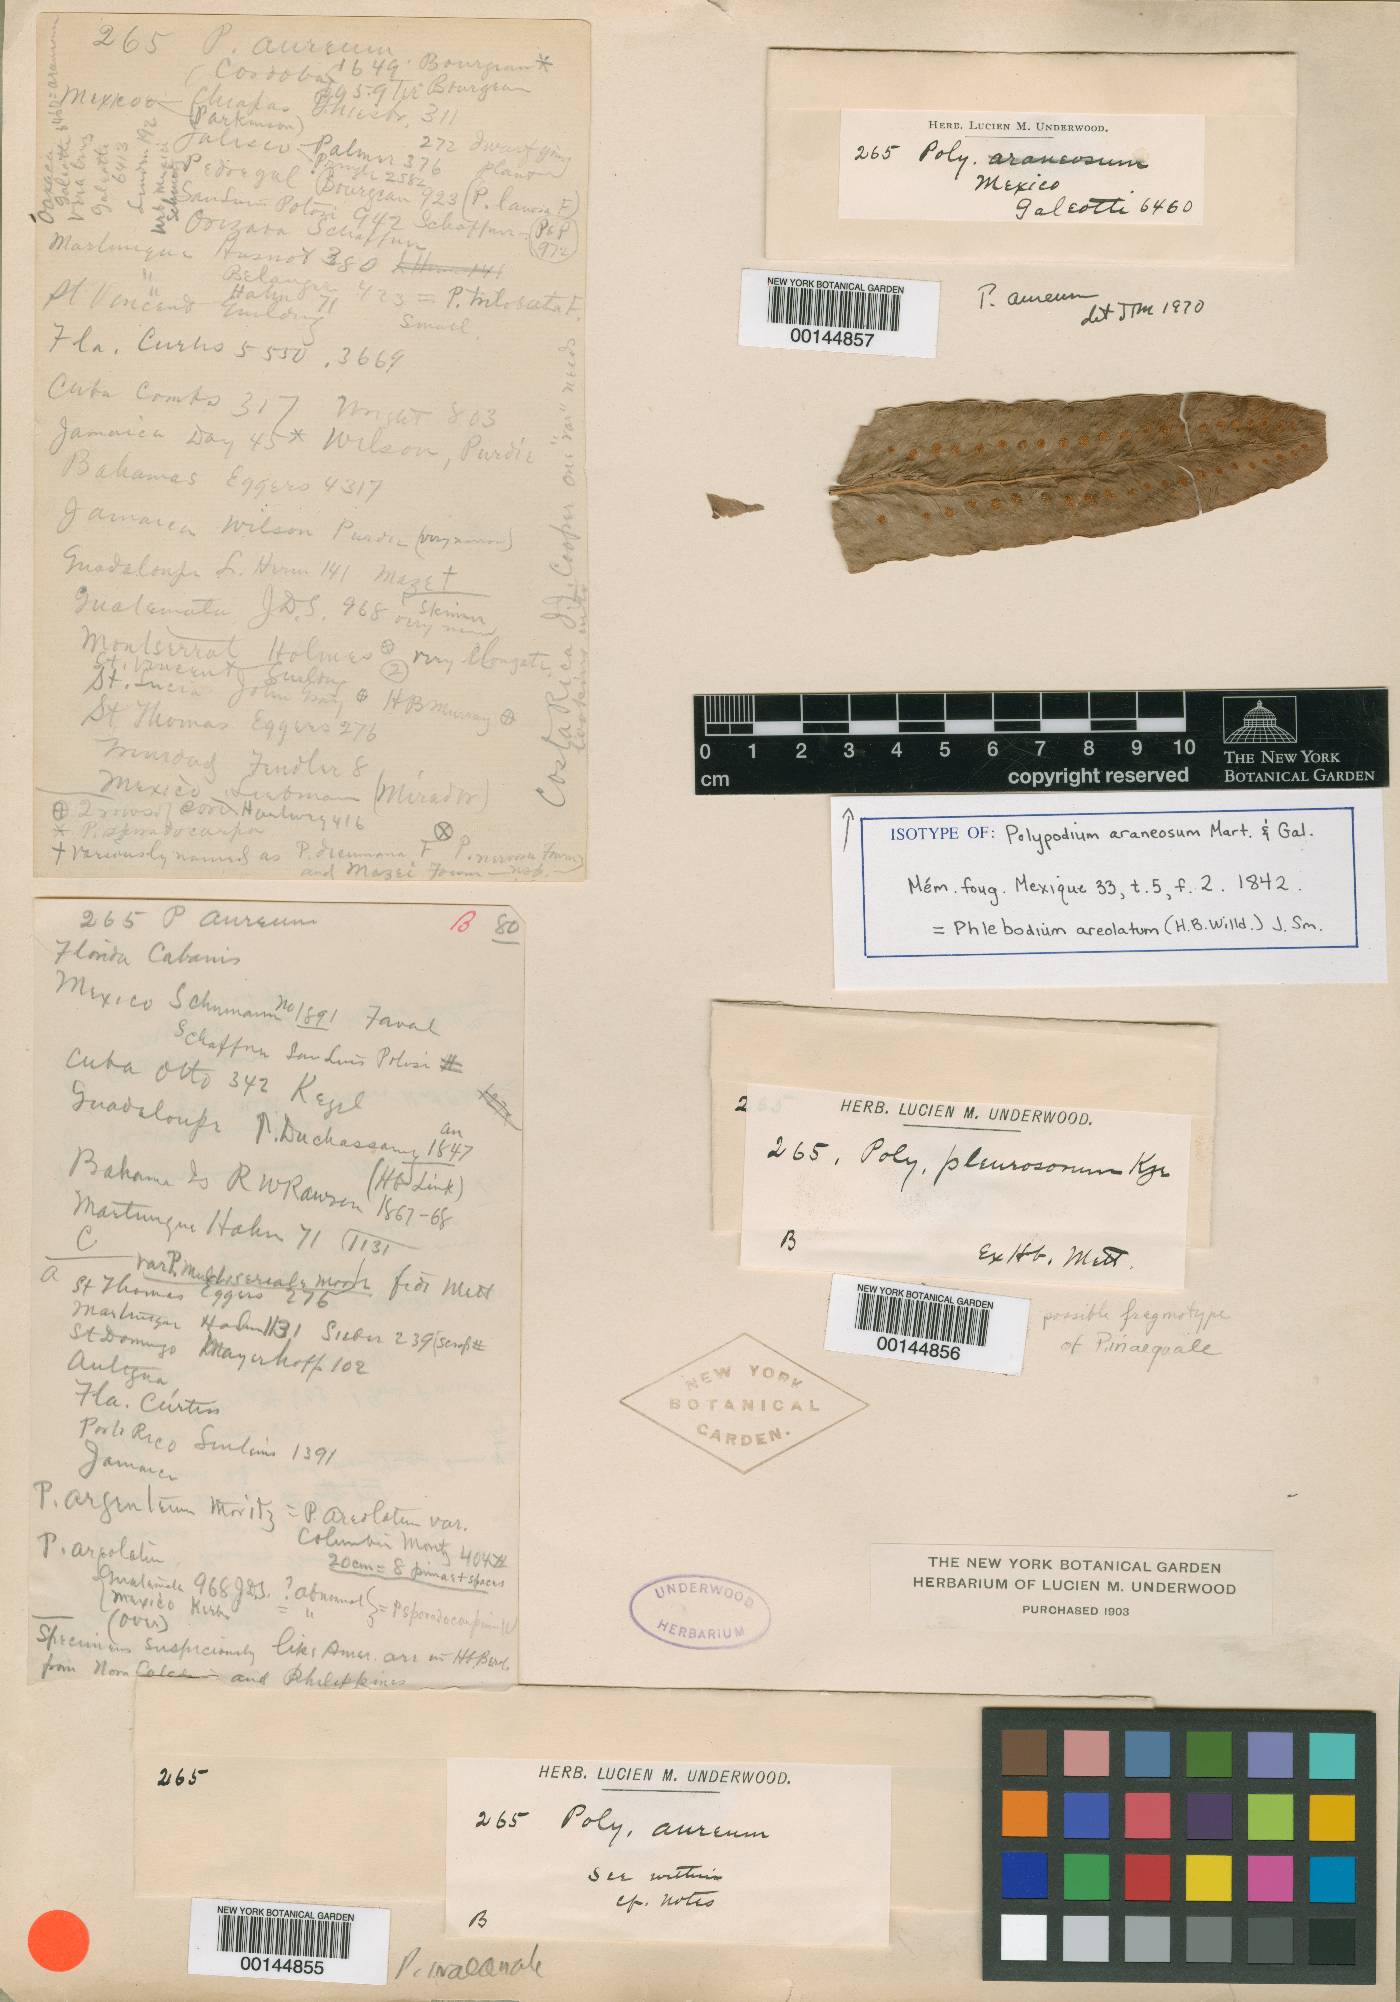 265 P. aureum
Cordoba 1649 Bourgeau*
Mexico Chiapas Ghiesbr. 311
(Parkinson)
Jalisco Palmer 272 Dwarf young plants
Pringle 2582 376
Pedregal Bourgeau 923 (P. lanosa F)
San Luis Potosi 942 Schaffner
Orizaba Schaffner
(P&P 972)
Oaxaca Galeotti 6460 = araneosum
Vera Cruz Galeotti 6413
Martinique Husnot 380 L'Herm 141
" Belanger
" Hahn 71 423 = P. trilobata F.
St Vincent Guilding Small
Fla. Curtiss 5550, 3669
Cuba Combs 317 Wright 803
Jamaica Day 45* Wilson, Purdie
Bahamas Eggers 4317
Jamaica Wilson Purdie (very narrow)
Guadaloupe L. Herm 141 Maze †
Guatemala J.D.S. 968 Skinner
Montserrat Holmes ⊕ very elongate
St. Vincent Guilding (2)
St. Lucia John Gray ⊕ H B Murray ⊕
St Thomas Eggers 276
Trinidad Fendler 8
Mexico Liebman (Mirador)
Hartweg 416
* P. sporadocarpa
† variously named as P. dreumana F P. nervosa Fourn
and Mazei Fourn — nsp.
Costa Rica J.J. Cooper one "var" needs
looking into
265 P aureum B 80
Florida Cabanis
Mexico Schumann no 1891
Schaffner San Luis Potosi #
Cuba Otto 342 Kegel
Guadaloupe P. Duchassaing an 1847
(Hb Link)
Bahama Is R W Rawson 1867-68
Martinique Hahn 71 1131
C
a var P. multiseriale Moore fide Mett
St Thomas Eggers 276
Martinique Hahn 1131 Sieber 239
St Domingo Mayerhoff 102
Antigua
Fla. Curtiss
Porto Rico Sintenis 1391
Jamaica
P. argenteum Moritz = P. areolatum var.
Columbia Moritz 404
20cm = 8 pinnae + spaces
P. areolatum
Guatemala 968 J.D.S. ? abnormal
Mexico Kerber = " = P sporadocarpium W
(over)
Specimens suspiciously like Amer. are in Hb. Berol.
from Nova Caled and Philippines
HERB. LUCIEN M. UNDERWOOD.
265 Poly. araneosum
Mexico
Galeotti 6460
NEW YORK BOTANICAL GARDEN
00144857
P. aureum
det JTM 1970
0 1 2 3 4 5 6 7 8 9 10
cm copyright reserved
THE NEW YORK
BOTANICAL GARDEN
ISOTYPE OF: Polypodium araneosum Mart. & Gal.
Mém. foug. Mexique 33, t. 5, f. 2. 1842.
= Phlebodium areolatum (H.B.Willd.) J. Sm.
265
HERB. LUCIEN M. UNDERWOOD.
265. Poly. pleurosorum Kze
B Ex Hb. Mett.
NEW YORK BOTANICAL GARDEN
00144856
possible fragmotype
of P. inaequale
NEW YORK
BOTANICAL
GARDEN.
UNDERWOOD
HERBARIUM
THE NEW YORK BOTANICAL GARDEN
HERBARIUM OF LUCIEN M. UNDERWOOD
PURCHASED 1903
265
HERB. LUCIEN M. UNDERWOOD.
265 Poly. aureum
See within
cp. notes
B
NEW YORK BOTANICAL GARDEN
00144855
P. inaequale